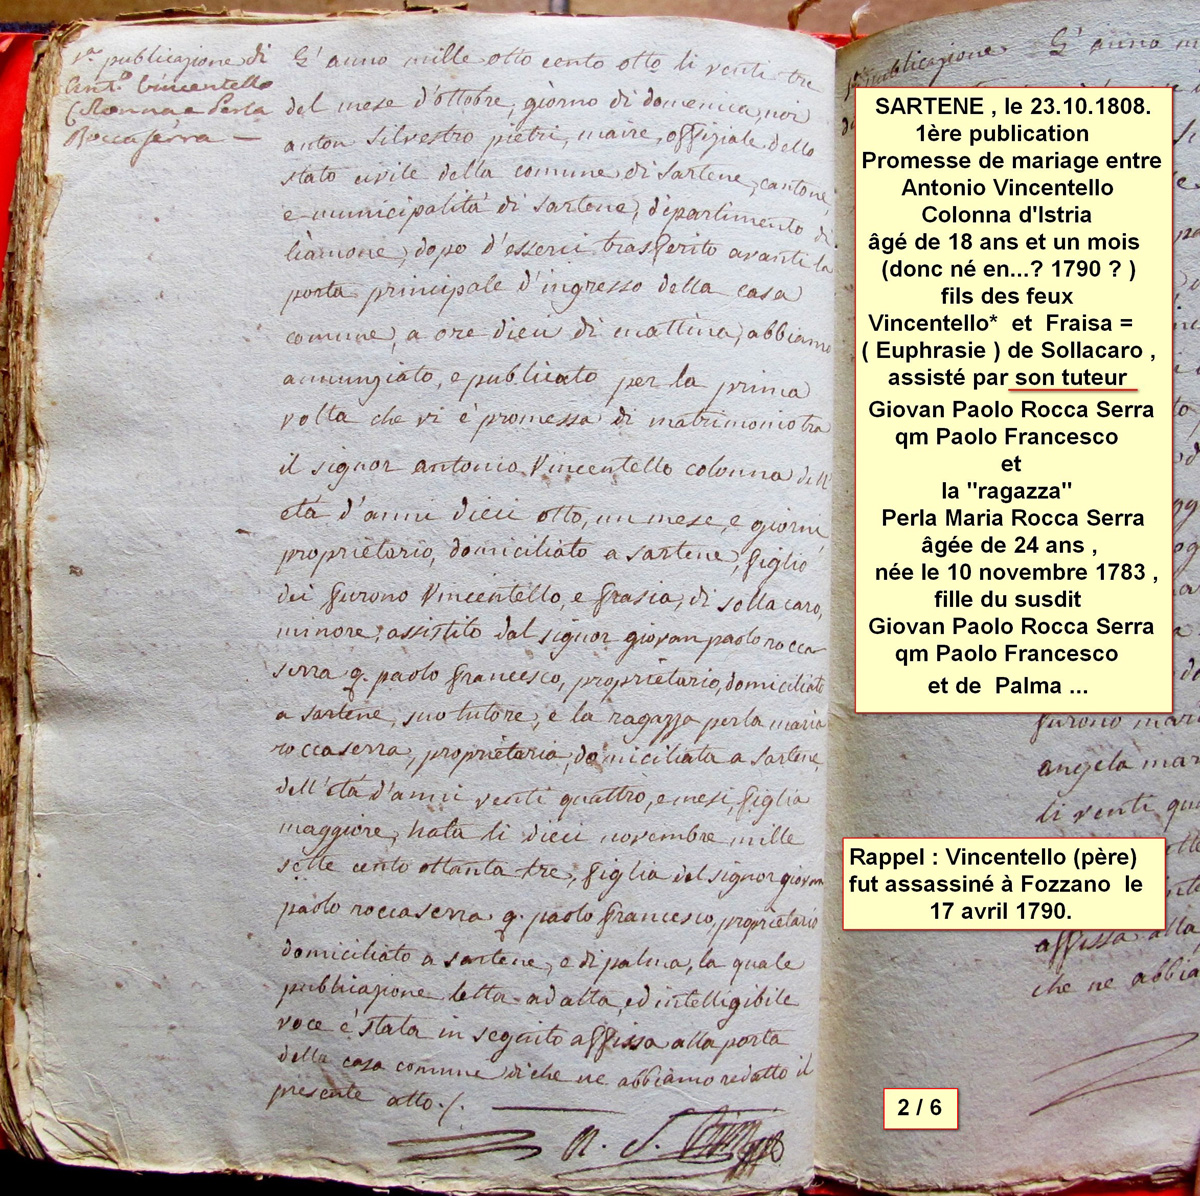 1.ª publicazione di
Ant.º Vincentello
Colonna e Perla
Roccaserra —
L'anno mille otto cento otto li venti tre
del mese d'ottobre, giorno di domenica, noi
anton Silvestro pietri, maire, offiziale dello
stato civile della comune di Sartene, cantone,
e municipalità di Sartene, dipartimento di
liamone, dopo d'esserci trasferito avanti la
porta principale d'ingresso della casa
comune, a ore dieci di mattina, abbiamo
annunziato, e publicato per la prima
volta che vi è promessa di matrimonio tra
il signor antonio Vincentello colonna dell'
età d'anni dieci otto, un mese, e giorni,
proprietario, domiciliato a Sartene, figlio
dei furono Vincentello, e frasia, di sollacaro,
minore, assistito dal signor giovan paolo rocca
serra q. paolo francesco, proprietario, domiciliato
a Sartene, suo tutore, e la ragazza perla maria
roccaserra, proprietaria, domiciliata a Sartene,
dell'età d'anni venti quattro, e mesi, figlia
maggiore, nata li dieci novembre mille
sette cento ottanta tre, figlia del signor giovan
paolo roccaserra q. paolo francesco, proprietario
domiciliato a Sartene, e di palma, la quale
publicazione letta ad alta, ed intelligibile
voce è stata in seguito affissa alla porta
della casa comune di che ne abbiamo redatto il
presente atto./.
publicazione
L'anno
SARTENE , le 23.10.1808.
1ère publication
Promesse de mariage entre
Antonio Vincentello
Colonna d'Istria
âgé de 18 ans et un mois
(donc né en...? 1790 ? )
fils des feux
Vincentello* et Fraisa =
( Euphrasie ) de Sollacaro ,
assisté par son tuteur
Giovan Paolo Rocca Serra
qm Paolo Francesco
et
la "ragazza"
Perla Maria Rocca Serra
âgée de 24 ans ,
née le 10 novembre 1783 ,
fille du susdit
Giovan Paolo Rocca Serra
qm Paolo Francesco
et de Palma ...
furono
angela
li venti
Rappel : Vincentello (père)
fut assassiné à Fozzano le
17 avril 1790.
affissa alla
che ne
2 / 6